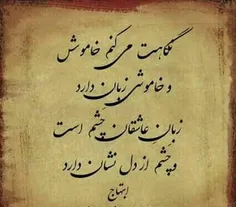 نگاهت می کنم خاموش
و خاموشی زبان دارد
زبان عاشقان چَشم است
و چَشم از دل نشان دارد
ابتهاج